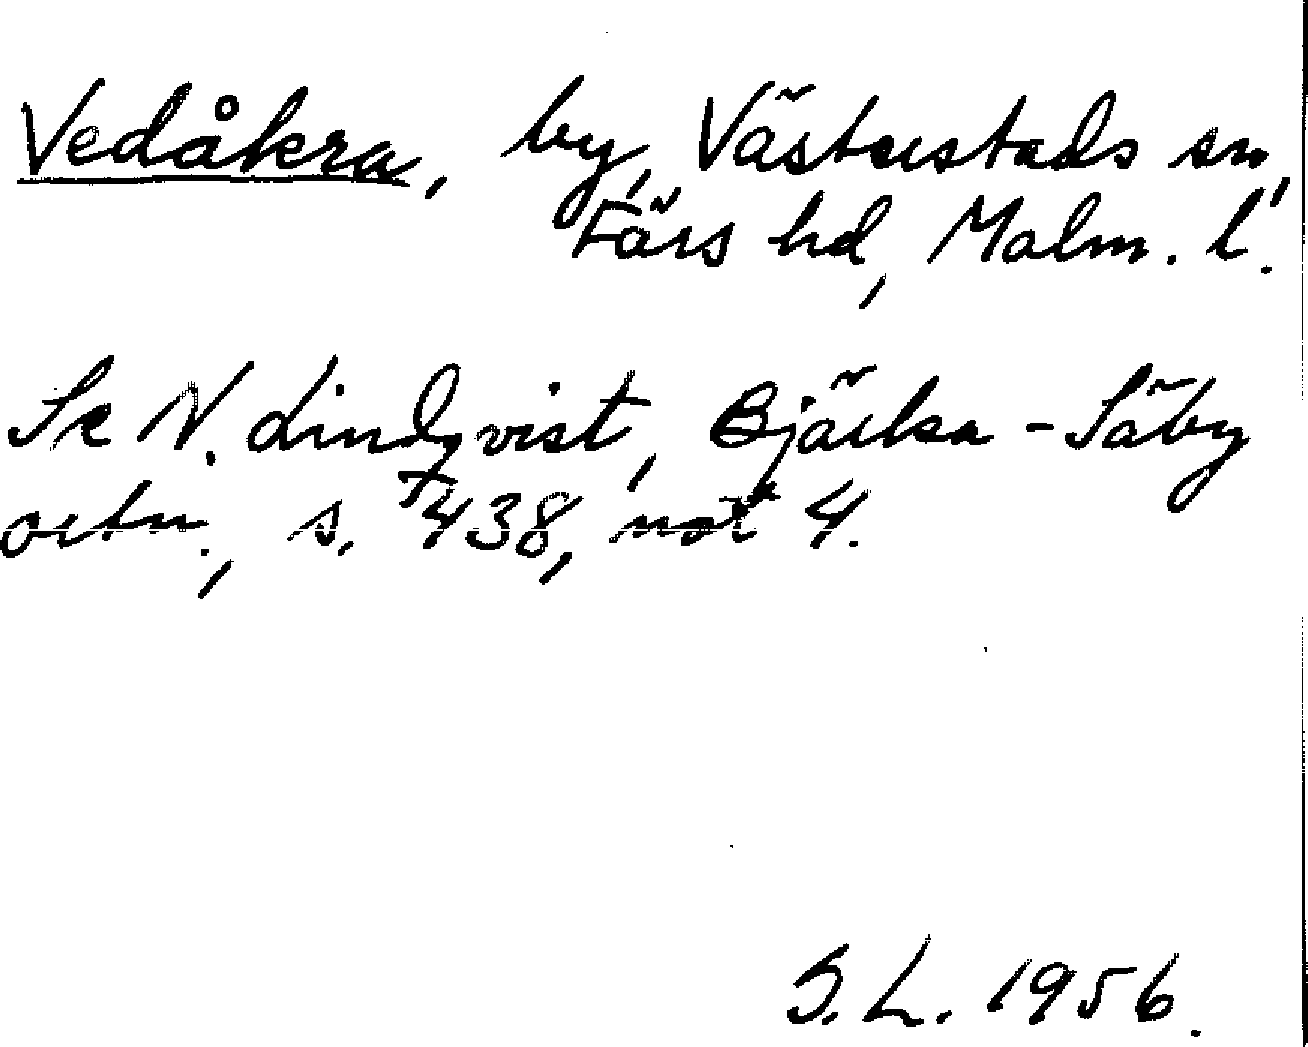 Vedåkra, by, Västerstads sn,
Färs hd, Malm. l.
Se N. Lindqvist, Bjärka-Säby
ortn., s. 438, not 4.
S. L. 1956.